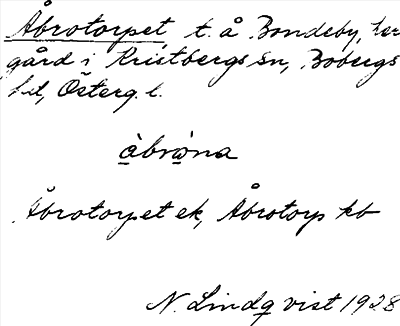 Åbrotorpet t. å Bondeby, her
gård i Kristbergs sn, Bobergs
hd, Österg. l.
åbrωna
Åbrotorpet ek, Åbrotorp kb
N. Lindqvist 1928